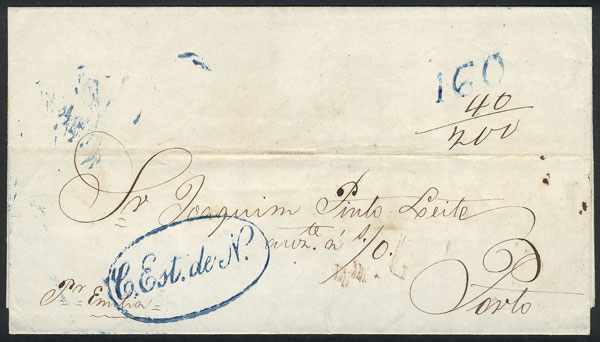 160
40
200
Sr. Joaquim Pinto Leite
auzte. á s/O.
C. Est. de N.
Pr Emilia
Porto